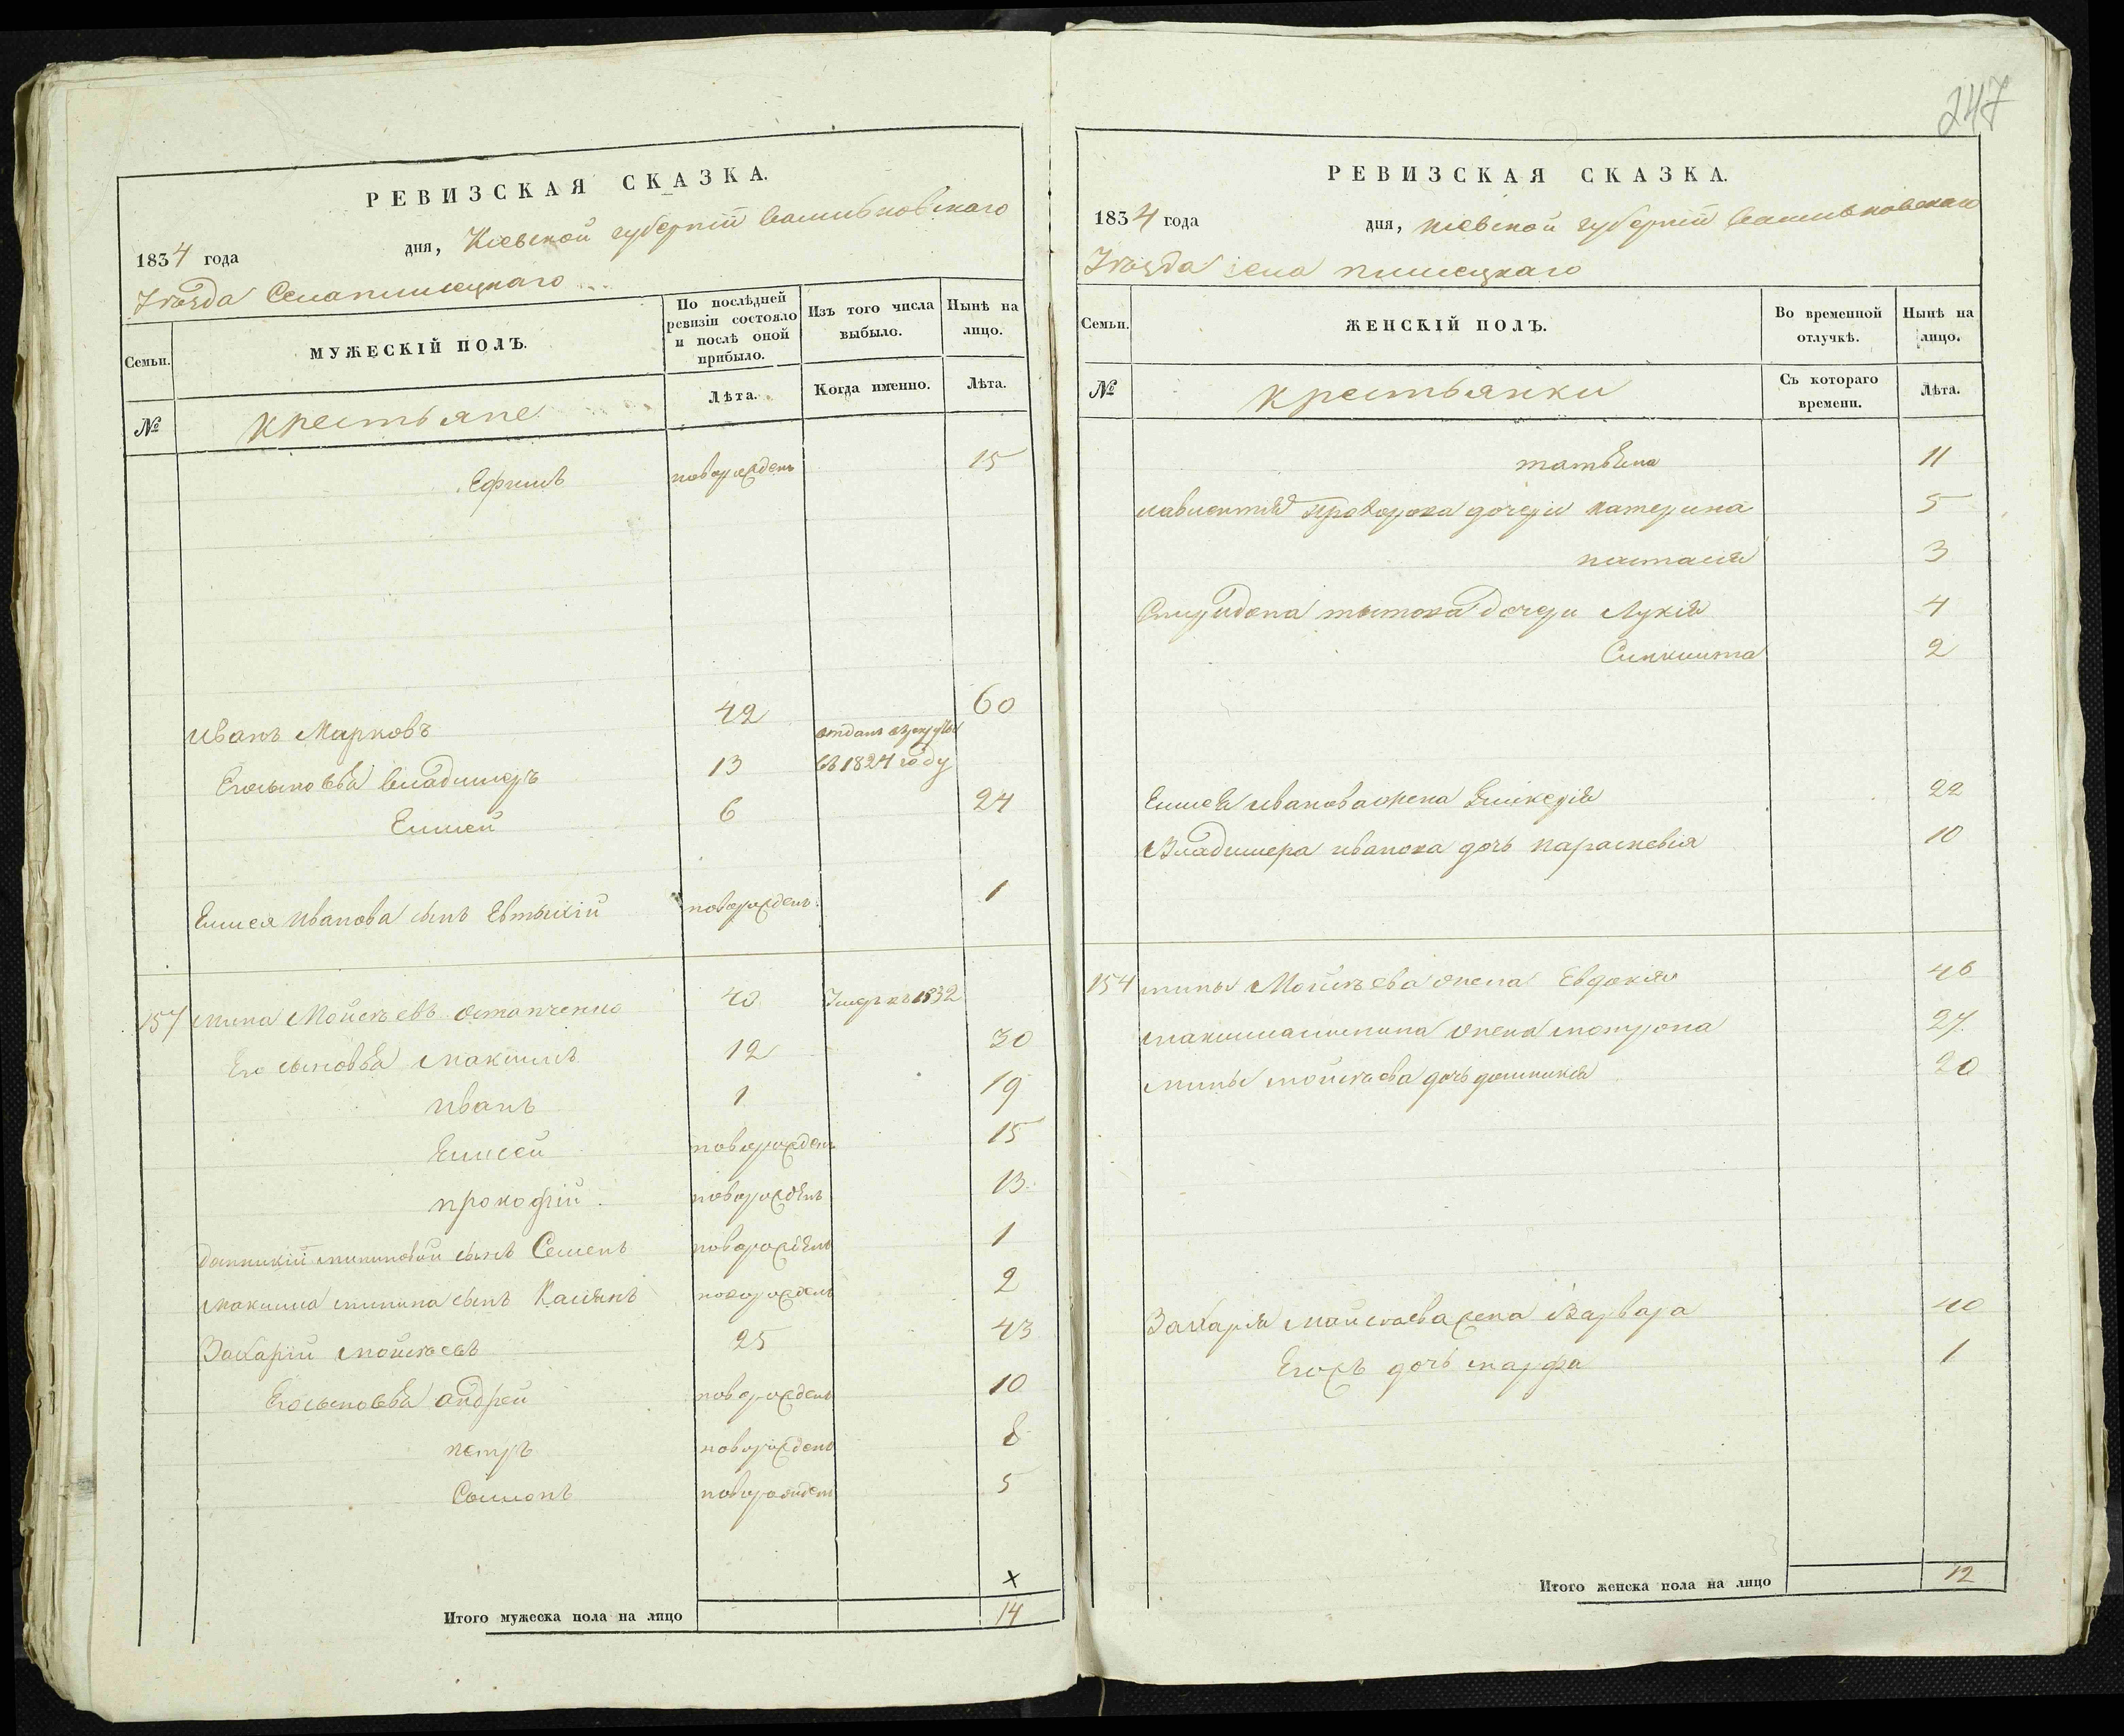 247
РЕВИЗСКАЯ СКАЗКА.
1834 года дня, Кіевской губерніи Васильковскаго
Уѣзда Села
Семьи.
МУЖЕСКІЙ ПОЛЪ.
По послѣдней ревизіи состояло и послѣ оной прибыло.
Изъ того числа выбыло.
Нынѣ на лицо.
№
крестьяне
Лѣта.
Когда именно.
Лѣта.
Ефимъ новорожденъ 15
Иванъ Марковъ 42 60
Его сыновья Владимеръ 13 отданъ въ рекруты въ 1824 году
Елисей 6 24
Елисея Иванова сынъ Евтыхій новорожденъ 1
157 Мина Мойсѣевъ Остапченко 40 Умеръ въ 1832
Его сыновья Максимъ 12 30
Иванъ 1 19
Елисей новорожденъ 15
прокофій новорожденъ 13
мининой сынъ Семенъ новорожденъ 1
Максима минина сынъ Касіянъ новорожденъ 2
Захарій Мойсѣевъ 25 43
Его сыновья андрей новорожденъ 10
петръ новорожденъ 8
новорожденъ 5
x
Итого мужеска пола на лицо 14
РЕВИЗСКАЯ СКАЗКА.
1834 года дня, Кіевской губерніи Васильковскаго
Уѣзда села
Семьи.
ЖЕНСКІЙ ПОЛЪ.
Во временной отлучкѣ.
Нынѣ на лицо.
№
крестьянки
Съ котораго времени.
Лѣта.
татьяна 11
дочери катерина 5
настасія 3
дочери Лукія 4
2
Елисея иванова жена 22
Владимера иванова дочь параскевія 10
154 мины Мойсѣева жена Евдокія 46
максима минина жена мотрона 27
мины мойсѣева дочь домникія 20
Захарія мойсѣева жена Варвара 40
Егожъ дочь марфа 1
Итого женска пола на лицо 12